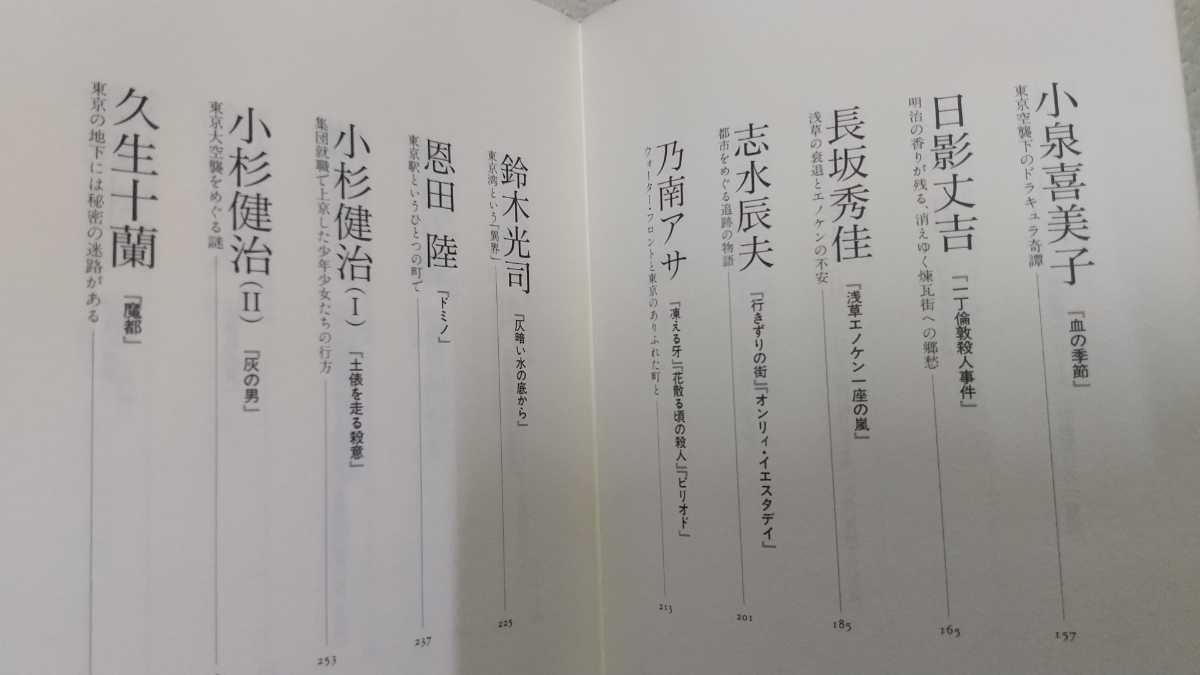 小泉喜美子 『血の季節』
東京空襲下のドラキュラ奇譚 157
日影丈吉 『一丁倫敦殺人事件』
明治の香りが残る、消えゆく煉瓦街への郷愁 165
長坂秀佳 『浅草エノケン一座の嵐』
浅草の衰退とエノケンの不安 185
志水辰夫 『行きずりの街』『オンリィ・イエスタデイ』
都市をめぐる追跡の物語 201
乃南アサ 『凍える牙』『花散る頃の殺人』『ピリオド』
ウォーター・フロントと東京のありふれた町と 213
鈴木光司 『仄暗い水の底から』
東京湾という「異界」 225
恩田 陸 『ドミノ』
東京駅というひとつの町で 237
小杉健治(I) 『土俵を走る殺意』
集団就職で上京した少年少女たちの行方 253
小杉健治(II) 『灰の男』
東京大空襲をめぐる謎
久生十蘭 『魔都』
東京の地下には秘密の迷路がある